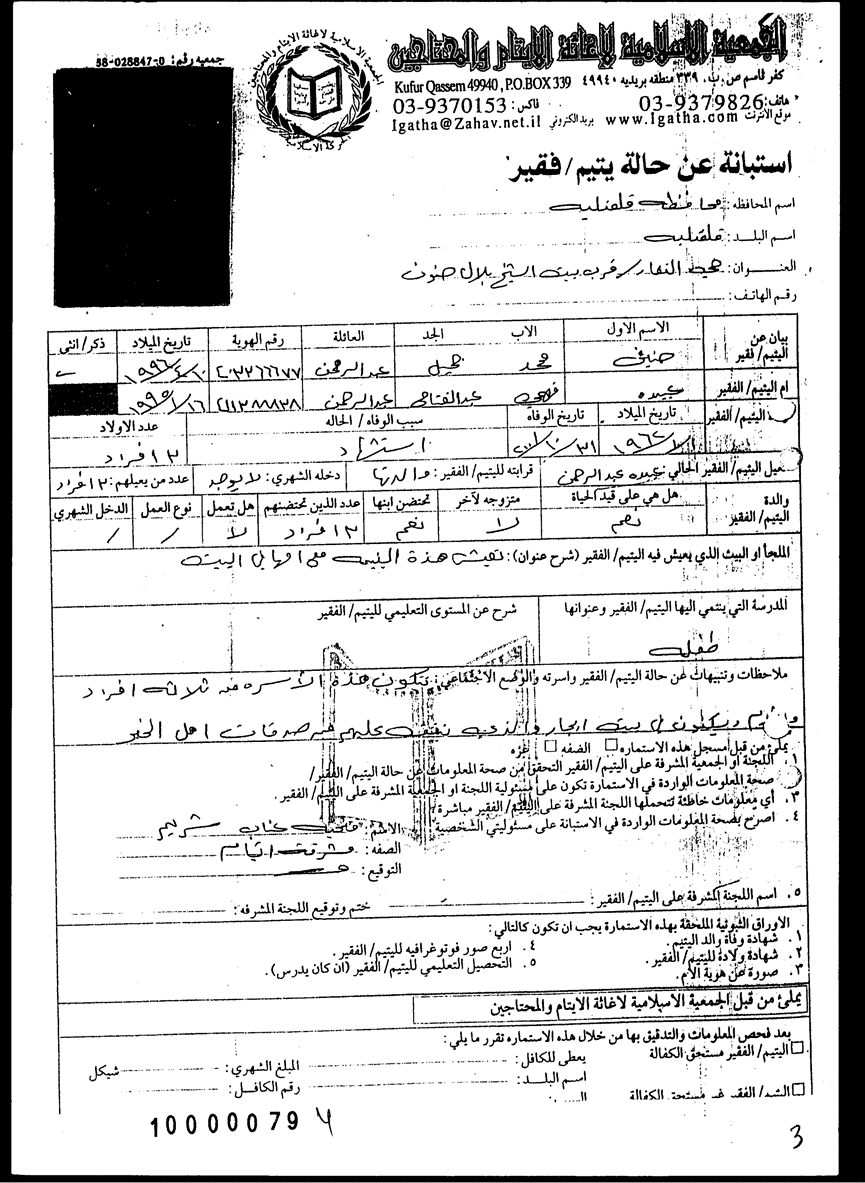 الجمعية الاسلامية لاغاثة الايتام والمحتاجين
جمعيه رقم: 58-028847-0
الجمعية الاسلامية لاغاثة الايتام والمحتاجين
الحركة الاسلامية
كفر قاسم ص.ب. ٣٣٩ منطقه بريديه ٤٩٩٤٠ Kufur Qassem 49940 , P.O.BOX 339
هاتف: 03-9379826 فاكس: 03-9370153
موقع الانترنت www.Igatha.com بريد الكتروني Igatha@Zahav.net.il
استبانة عن حالة يتيم/ فقير
اسم المحافظه: محافظة قلقيليه
اسم البلد: قلقيليه
العنوان: قرب بيت الشيخ بلال حنون
رقم الهاتف:
بيان عن اليتيم/ فقير
الاسم الاول الاب الجد العائلة رقم الهوية تاريخ الميلاد ذكر/ انثى
محمد جميل عبدالرحمن
ام اليتيم/ الفقير
عبيده عبدالفتاح عبدالرحمن
اليتيم/ الفقير تاريخ الميلاد تاريخ الوفاه سبب الوفاه/ الحاله عدد الاولاد
استشهاد ٣ افراد
معيل اليتيم/ الفقير الحالي: عبيده عبدالرحمن قرابته لليتيم/ الفقير: والدتها دخله الشهري: لا يوجد عدد من يعيلهم: ٣ افراد
والدة اليتيم/ الفقير
هل هي على قيد الحياة متزوجه لآخر تحتضن ابنها عدد الذين تحتضنهم هل تعمل نوع العمل الدخل الشهري
نعم لا نعم ٣ افراد لا / /
الملجأ او البيت الذي يعيش فيه اليتيم/ الفقير (شرح عنوان): تعيش هذة اليتيمه البيت
المدرسة التي ينتمي اليها اليتيم/ الفقير وعنوانها شرح عن المستوى التعليمي لليتيم/ الفقير
طفله
ملاحظات وتنبيهات عن حالة اليتيم/ الفقير واسرته والوضع الاجتماعي: تتكون هذة الأسره من ثلاثه افراد
بيت ايجار والذي عليهم من صدقات اهل الخير
يملئ من قبل مسجل هذه الاستماره □ الضفه □ غزه
١. اللجنة او الجمعية المشرفة على اليتيم/ الفقير التحقق من صحة المعلومات عن حالة اليتيم/ الفقير/
صحة المعلومات الواردة في الاستمارة تكون على مسئولية اللجنة او الجمعية المشرفة على اليتيم/ الفقير.
٣. أي معلومات خاطئة تتحملها اللجنة المشرفة على اليتيم/ الفقير مباشرة.
٤. اصرح بصحة المعلومات الواردة في الاستبانة على مسئوليتي الشخصية
الاسم: شريم
الصفه: مشرفة ايتام
التوقيع:
٥. اسم اللجنة المشرفة على اليتيم/ الفقير: ختم وتوقيع اللجنة المشرفه:
الأوراق الثبوتية الملحقة بهذه الاستمارة يجب ان تكون كالتالي:
١. شهادة وفاة والد اليتيم. ٤. اربع صور فوتوغرافيه لليتيم/ الفقير.
٢. شهادة ولادة لليتيم/ الفقير. ٥. التحصيل التعليمي لليتيم/ الفقير (ان كان يدرس).
٣. صورة عن هوية الأم.
يملئ من قبل الجمعية الاسلامية لاغاثة الايتام والمحتاجين
بعد فحص المعلومات والتدقيق بها من خلال هذه الاستماره تقرر ما يلي:
□ اليتيم/ الفقير مستحق الكفالة يعطى للكافل: المبلغ الشهري: شيكل
اسم البلد: رقم الكافل:
□ اليتيم/ الفقير غير مستحق الكفالة
10000079
3